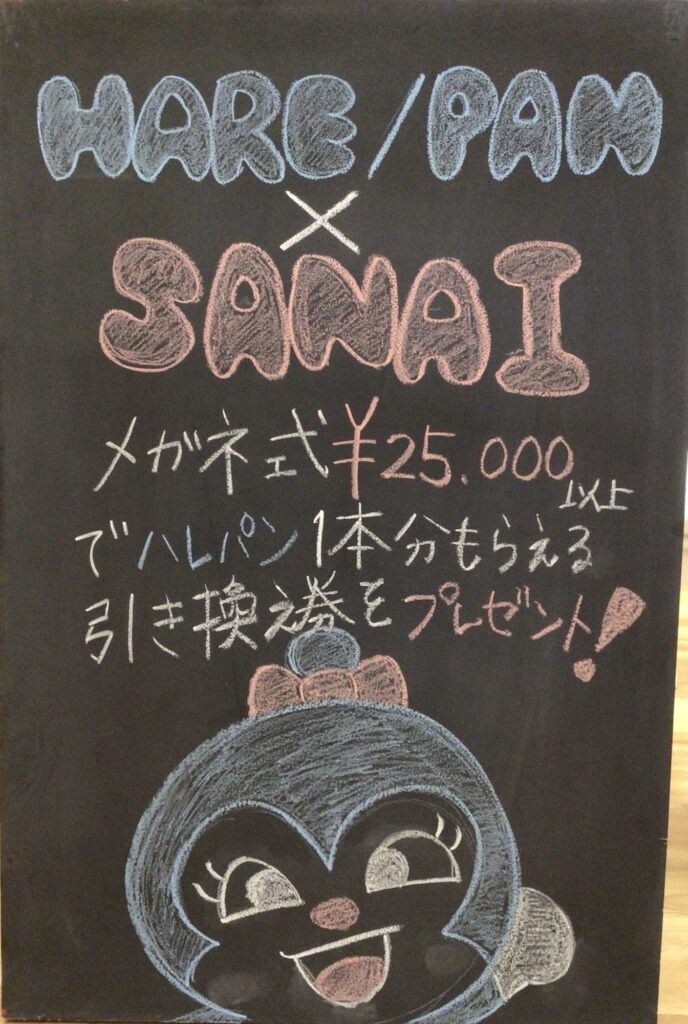 HARE/PAN
×
SANAI
メガネ式¥25.000
以上
でハレパン1本分もらえる
引き換え券を プレゼント!